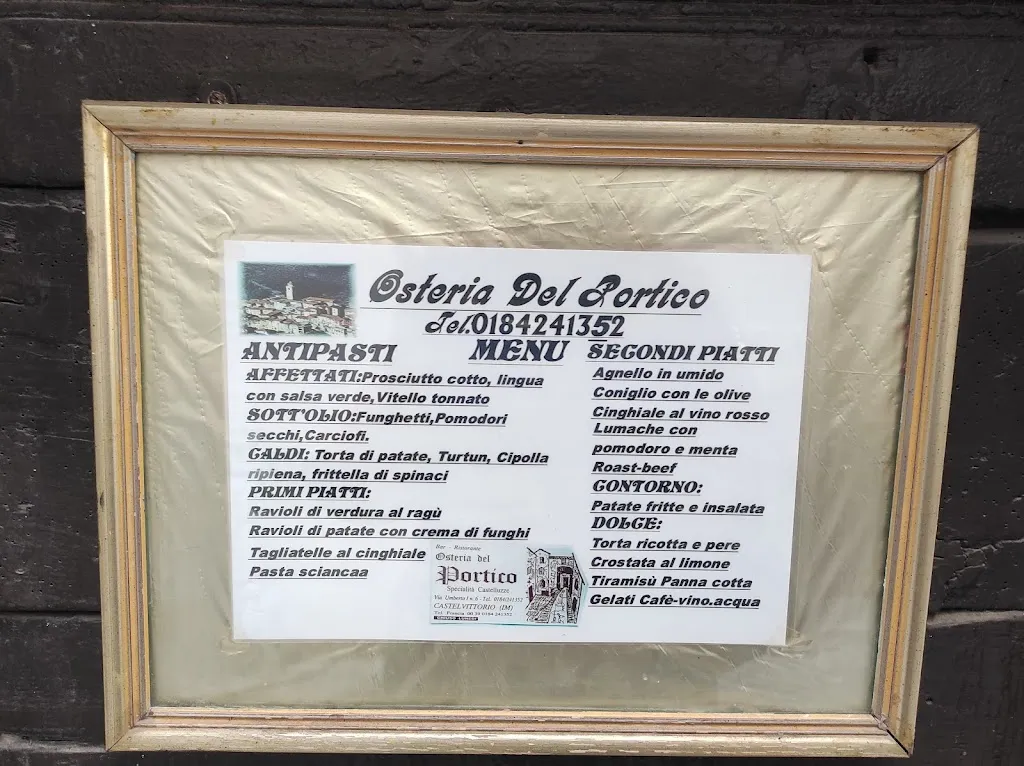 Osteria Del Portico
Tel.0184241352
MENU
ANTIPASTI
AFFETTATI:Prosciutto cotto, lingua
con salsa verde,Vitello tonnato
SOTT'OLIO:Funghetti,Pomodori
secchi,Carciofi.
CALDI: Torta di patate, Turtun, Cipolla
ripiena, frittella di spinaci
PRIMI PIATTI:
Ravioli di verdura al ragù
Ravioli di patate con crema di funghi
Tagliatelle al cinghiale
Pasta sciancaa
SECONDI PIATTI
Agnello in umido
Coniglio con le olive
Cinghiale al vino rosso
Lumache con
pomodoro e menta
Roast-beef
CONTORNO:
Patate fritte e insalata
DOLCE:
Torta ricotta e pere
Crostata al limone
Tiramisù Panna cotta
Gelati Cafè-vino.acqua
Bar - Ristorante
Osteria del
Portico
Specialità Castelluzze
Via Umberto I n. 6 - Tel. 0184/241352
CASTELVITTORIO (IM)
Tel. Francia 00 39 0184 241352
CHIUSO LUNEDI